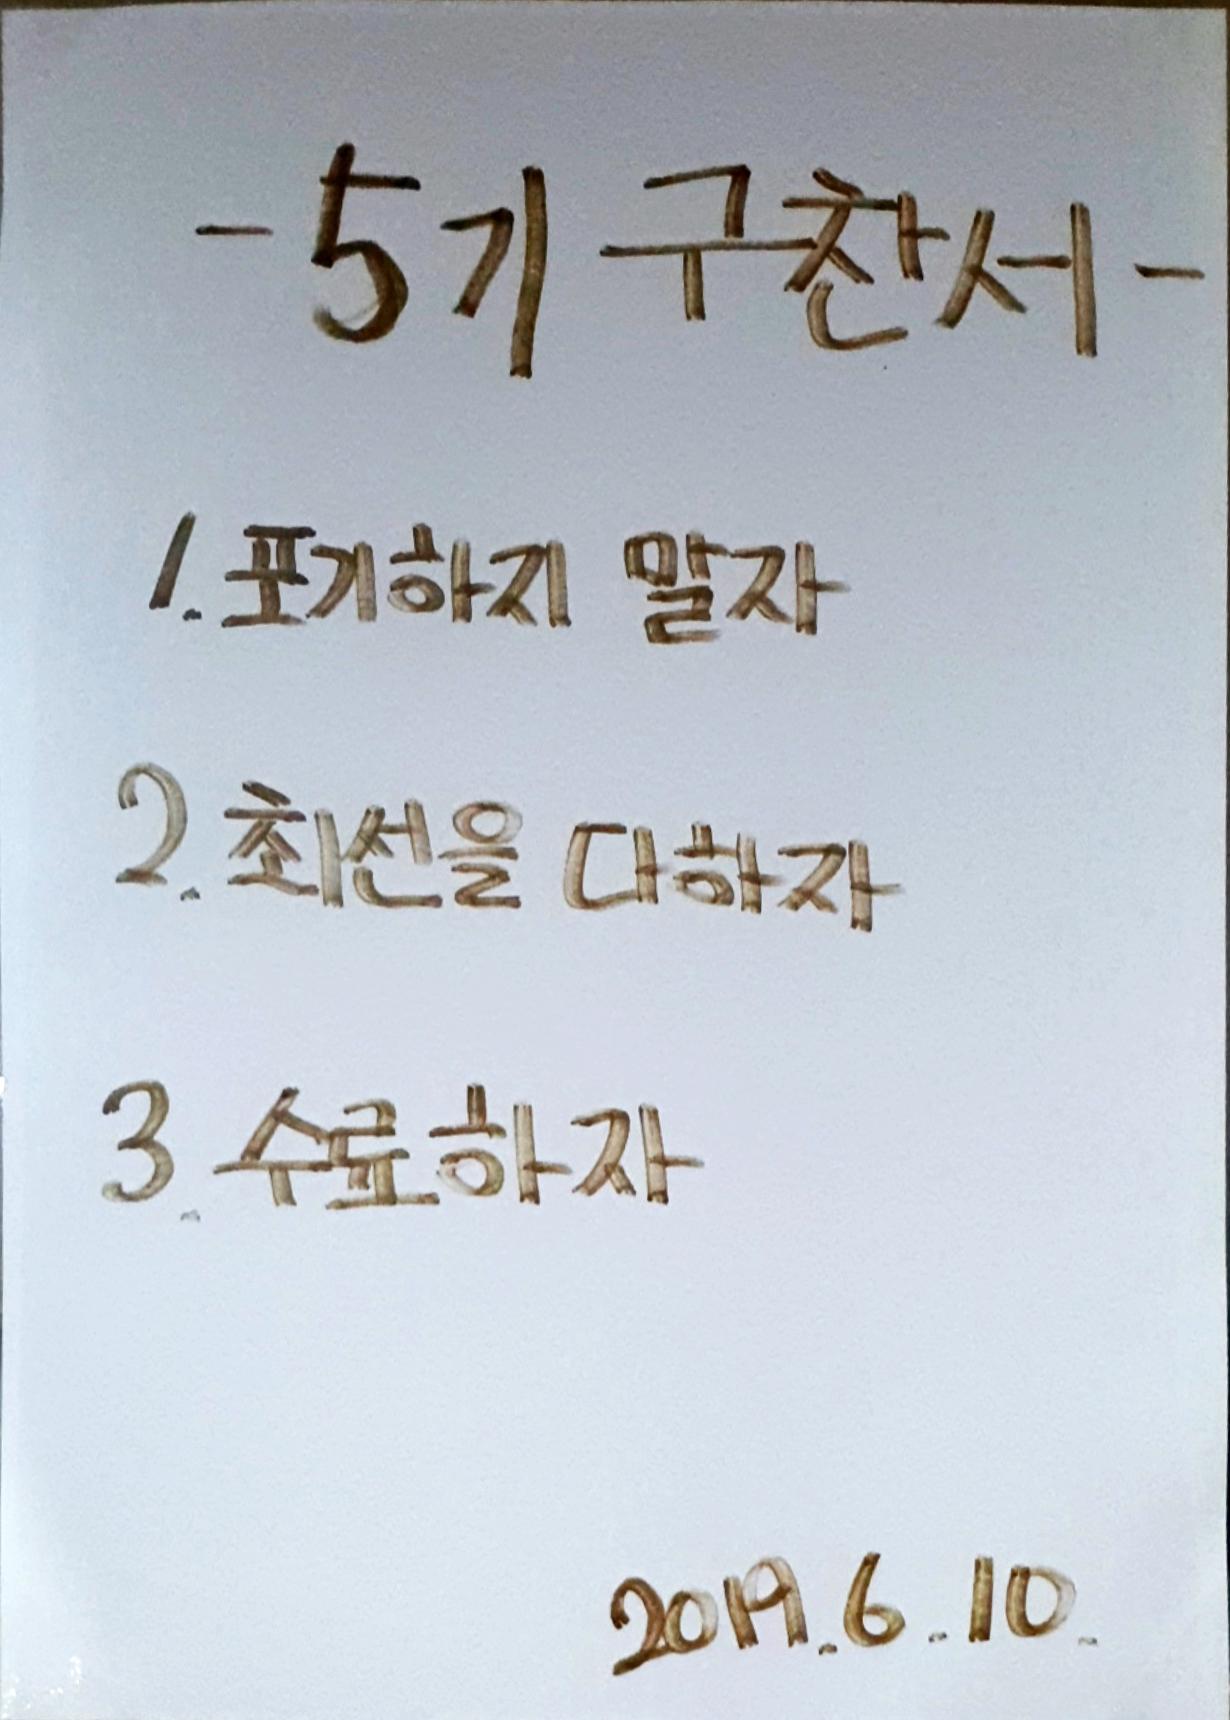 -5기 구찬서-
1. 포기하지 말자
2. 최선을 다하자
3. 수료하자
2019. 6. 10.